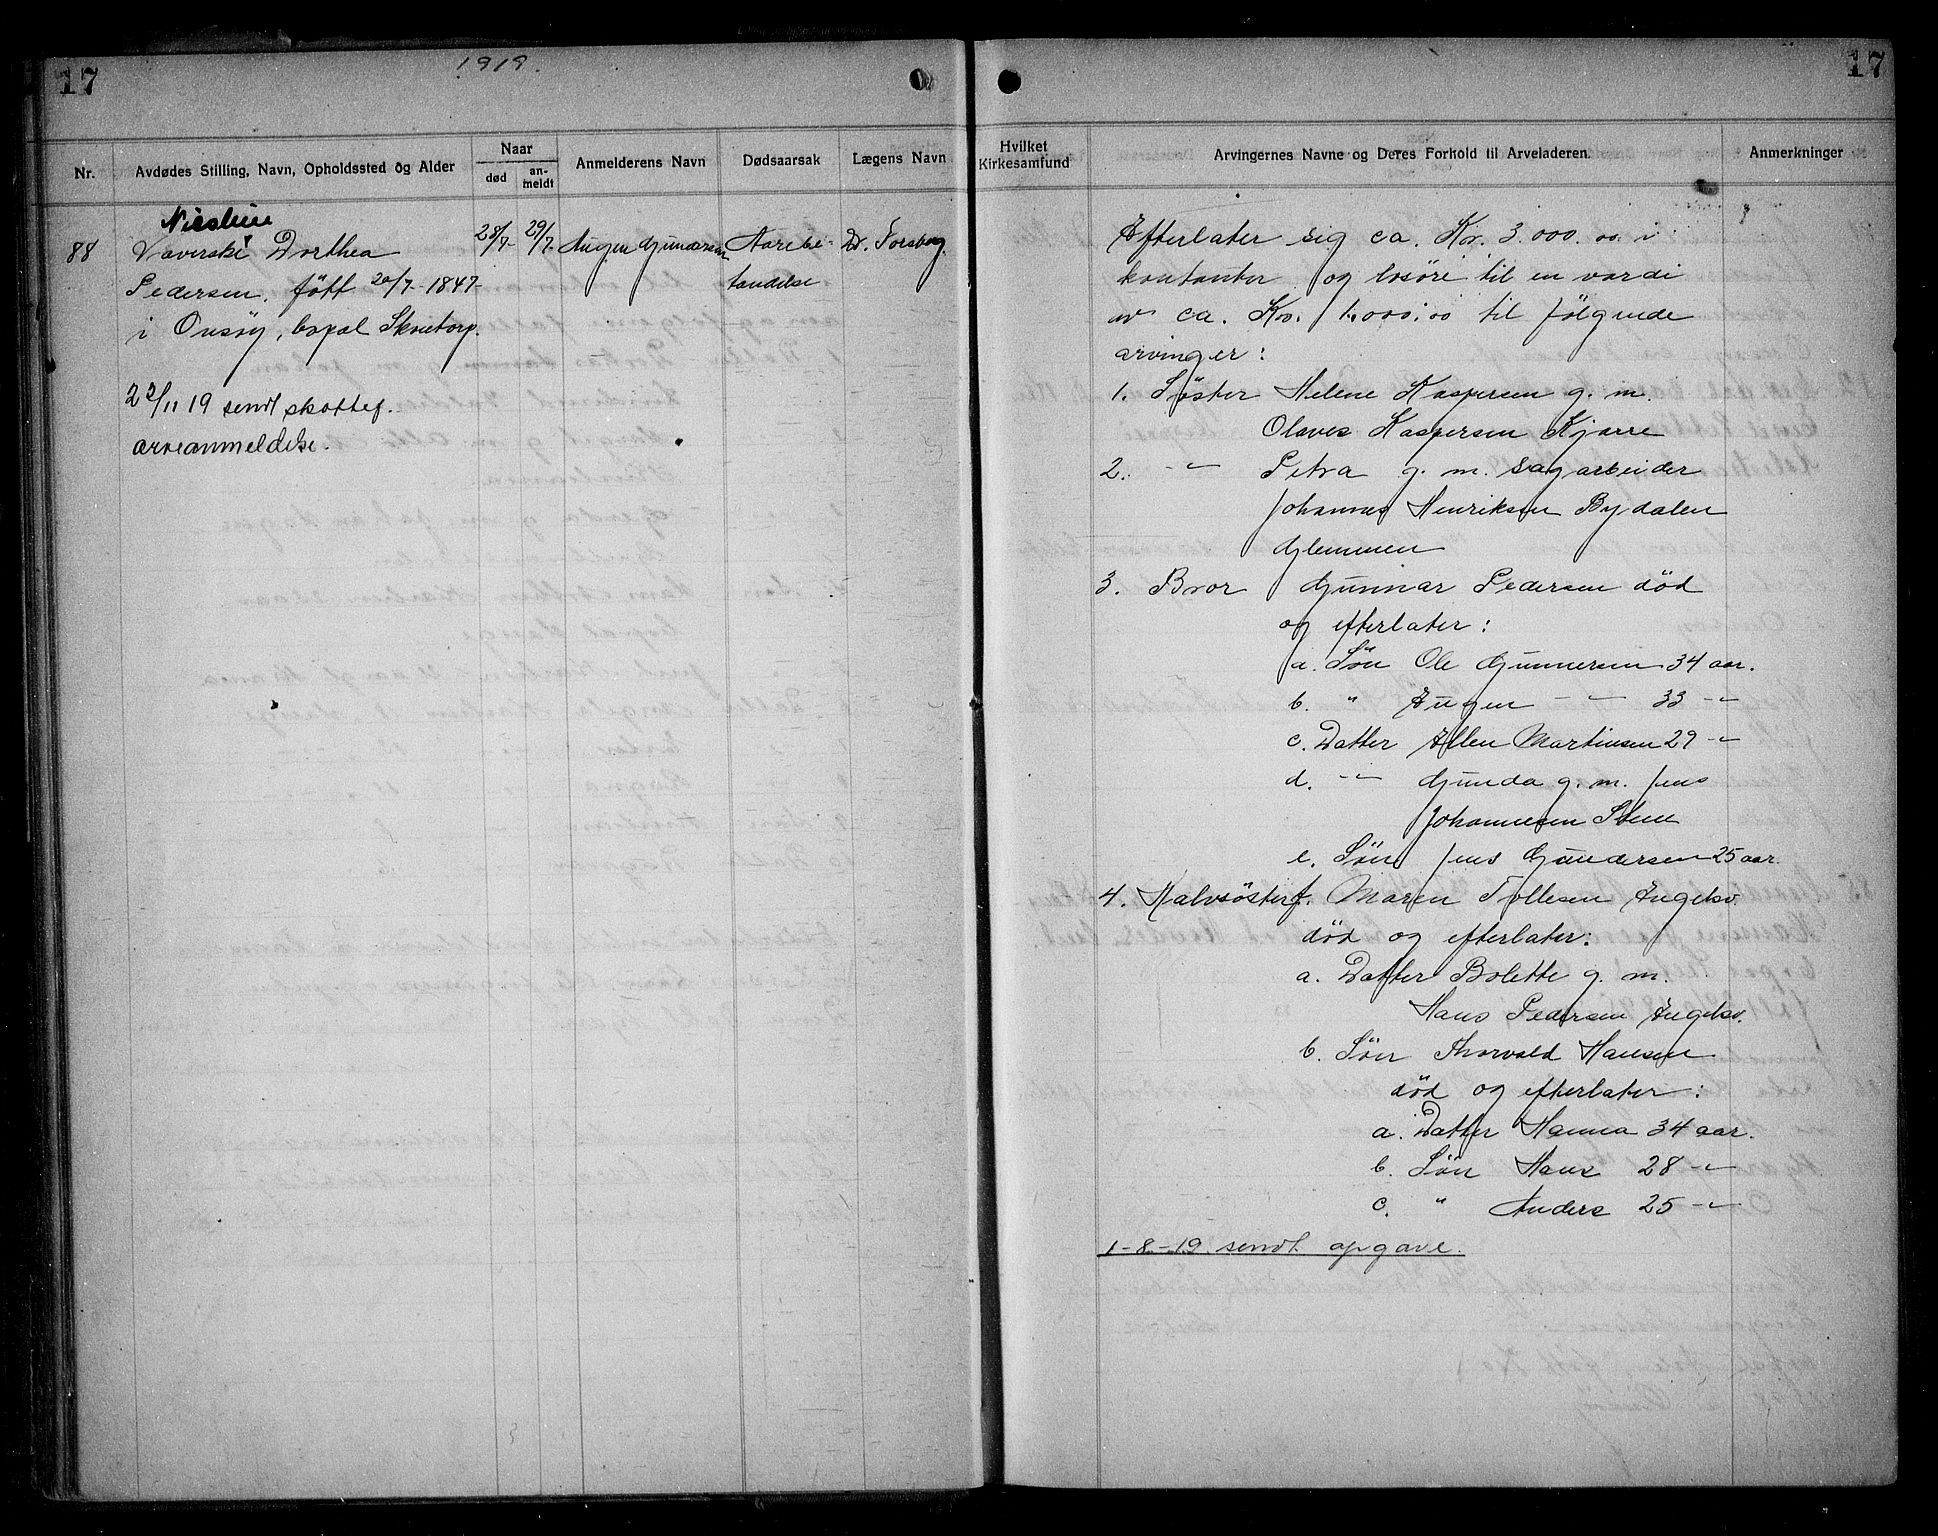 17
1919.
Nr.
Avdødes Stilling, Navn, Opholdssted og Alder
Naar
død
an-
meldt
Anmelderens Navn
Dødsaarsak
Lægens Navn
88
Væverske Dorthea
Pedersen, født 20/7-1847-
i Onsøy, bopæl Skovtorp.
28/7-
29/7-
Augen Gundersen
Aarebe-
tændelse
Dr. Forsberg
22/11 19 sendt skattef.
arveanmeldelse.
17
Hvilket
Kirkesamfund
Arvingernes Navne og Deres Forhold til Arveladeren.
Anmerkninger
Efterlater sig ca. Kr. 3.000.00 i
kontanter og løsøre til en værdi
av ca. Kr. 1.000.00 til følgende
arvinger:
1. Søster Helene Kaspersen g. m.
Olaves Kaspersen Kjærre
2. -"- Petra g. m. sagarbeider
Johannes Henriksen Bydalen
Glemmen
3. Bror Gunnar Pedersen død
og efterlater:
a. Søn Ole Gunnersen 34 aar.
b. " Augen -"- 33 -"-
c. Datter Ellen Martinsen 29 -"-
d. -"- Gunda g. m. Jens
Johannesen Stene
e. Søn Jens Gundersen 25 aar.
4. Halvsøster f. Maren Tollesen Engelsv.
død og efterlater:
a. Datter Bolette g. m.
Hans Pedersen Engelsv.
b. Søn Thorvald Hansen
død og efterlater:
a. Datter Hanna 34 aar.
b. Søn Hans 28 -"-
c. " Anders 25 -"-
1-8-19 sendt opgave.